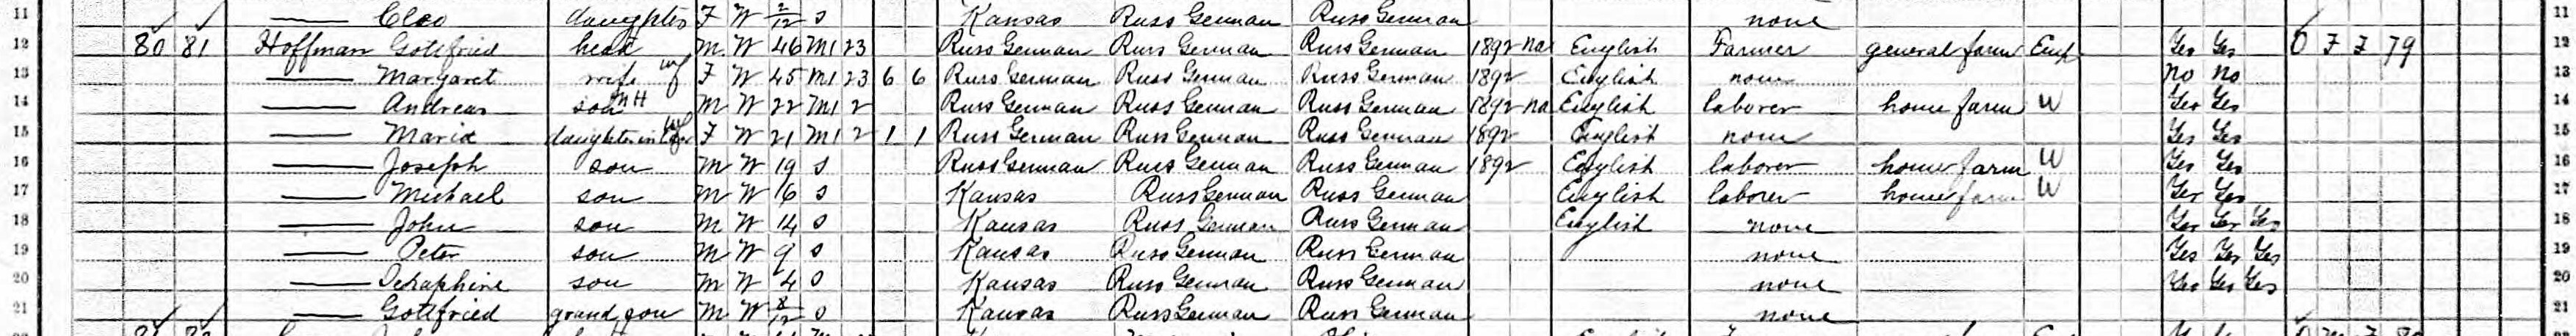 11 —— Cleo daughter F W 2/12 S Kansas Russ German Russ German none 11
12 80 81 Hoffman Gottfried head M W 46 M1 23 Russ German Russ German Russ German 1892 na English Farmer general farm Emp Yes Yes O F F 79 12
13 —— Margaret wife F W 45 M1 23 6 6 Russ German Russ German Russ German 1892 English none no no 13
14 —— Andreas son M W 22 M1 2 Russ German Russ German Russ German 1892 na English laborer home farm W Yes Yes 14
15 —— Maria daughter in law F W 21 M1 2 1 1 Russ German Russ German Russ German 1892 English none Yes Yes 15
16 —— Joseph son M W 19 S Russ German Russ German Russ German 1892 English laborer home farm W Yes Yes 16
17 —— Michael son M W 16 S Kansas Russ German Russ German English laborer home farm W Yes Yes 17
18 —— John son M W 14 S Kansas Russ German Russ German English none Yes Yes Yes 18
19 —— Peter son M W 9 S Kansas Russ German Russ German none Yes Yes Yes 19
20 —— Seraphine son M W 4 S Kansas Russ German Russ German none Yes Yes Yes 20
21 —— Gottfried grand son M W 8/12 S Kansas Russ German Russ German none 21